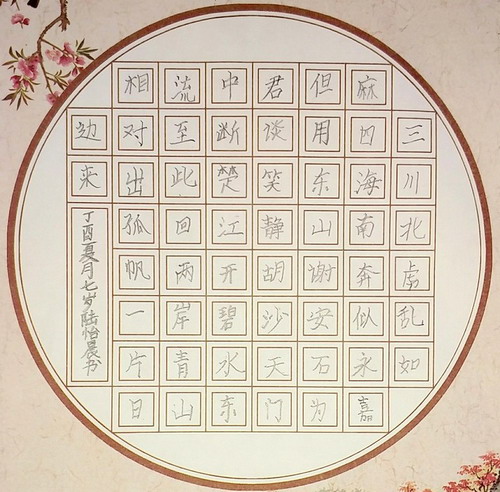 三川北虏乱如
麻四海南奔似永嘉
但用东山谢安石为
君谈笑静胡沙天门
中断楚江开碧水东
流至此回两岸青山
相对出孤帆一片日
边来
丁酉夏月七岁陆怡晨书